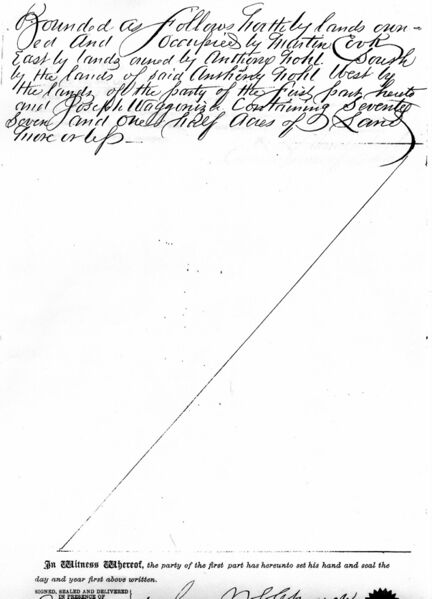 Bounded as Follows North by lands own-
ed And Occupied by Martin Cook
East by lands owned by Anthony Hohl. South
by the lands of said Anthony Hohl West by
the lands of the party of the first part hereto
and Joseph Waggoner Containing Seventy
Seven and One half Acres of Land
more or less
In Witness Whereof, the party of the first part has hereunto set his hand and seal the
day and year first above written.
SIGNED, SEALED AND DELIVERED
IN PRESENCE OF